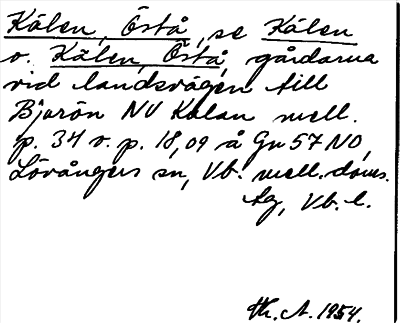 Kälen, Östå, se Kälen
o. Kälen, Östå, gårdarna
vid landsvägen till
Bjurön NV Kälan mell.
p. 34 o. p. 18,09 å Gn 57 NO,
Lövångers sn, Vb. mell. doms.
Ag, Vb. l.
Th. A. 1954.